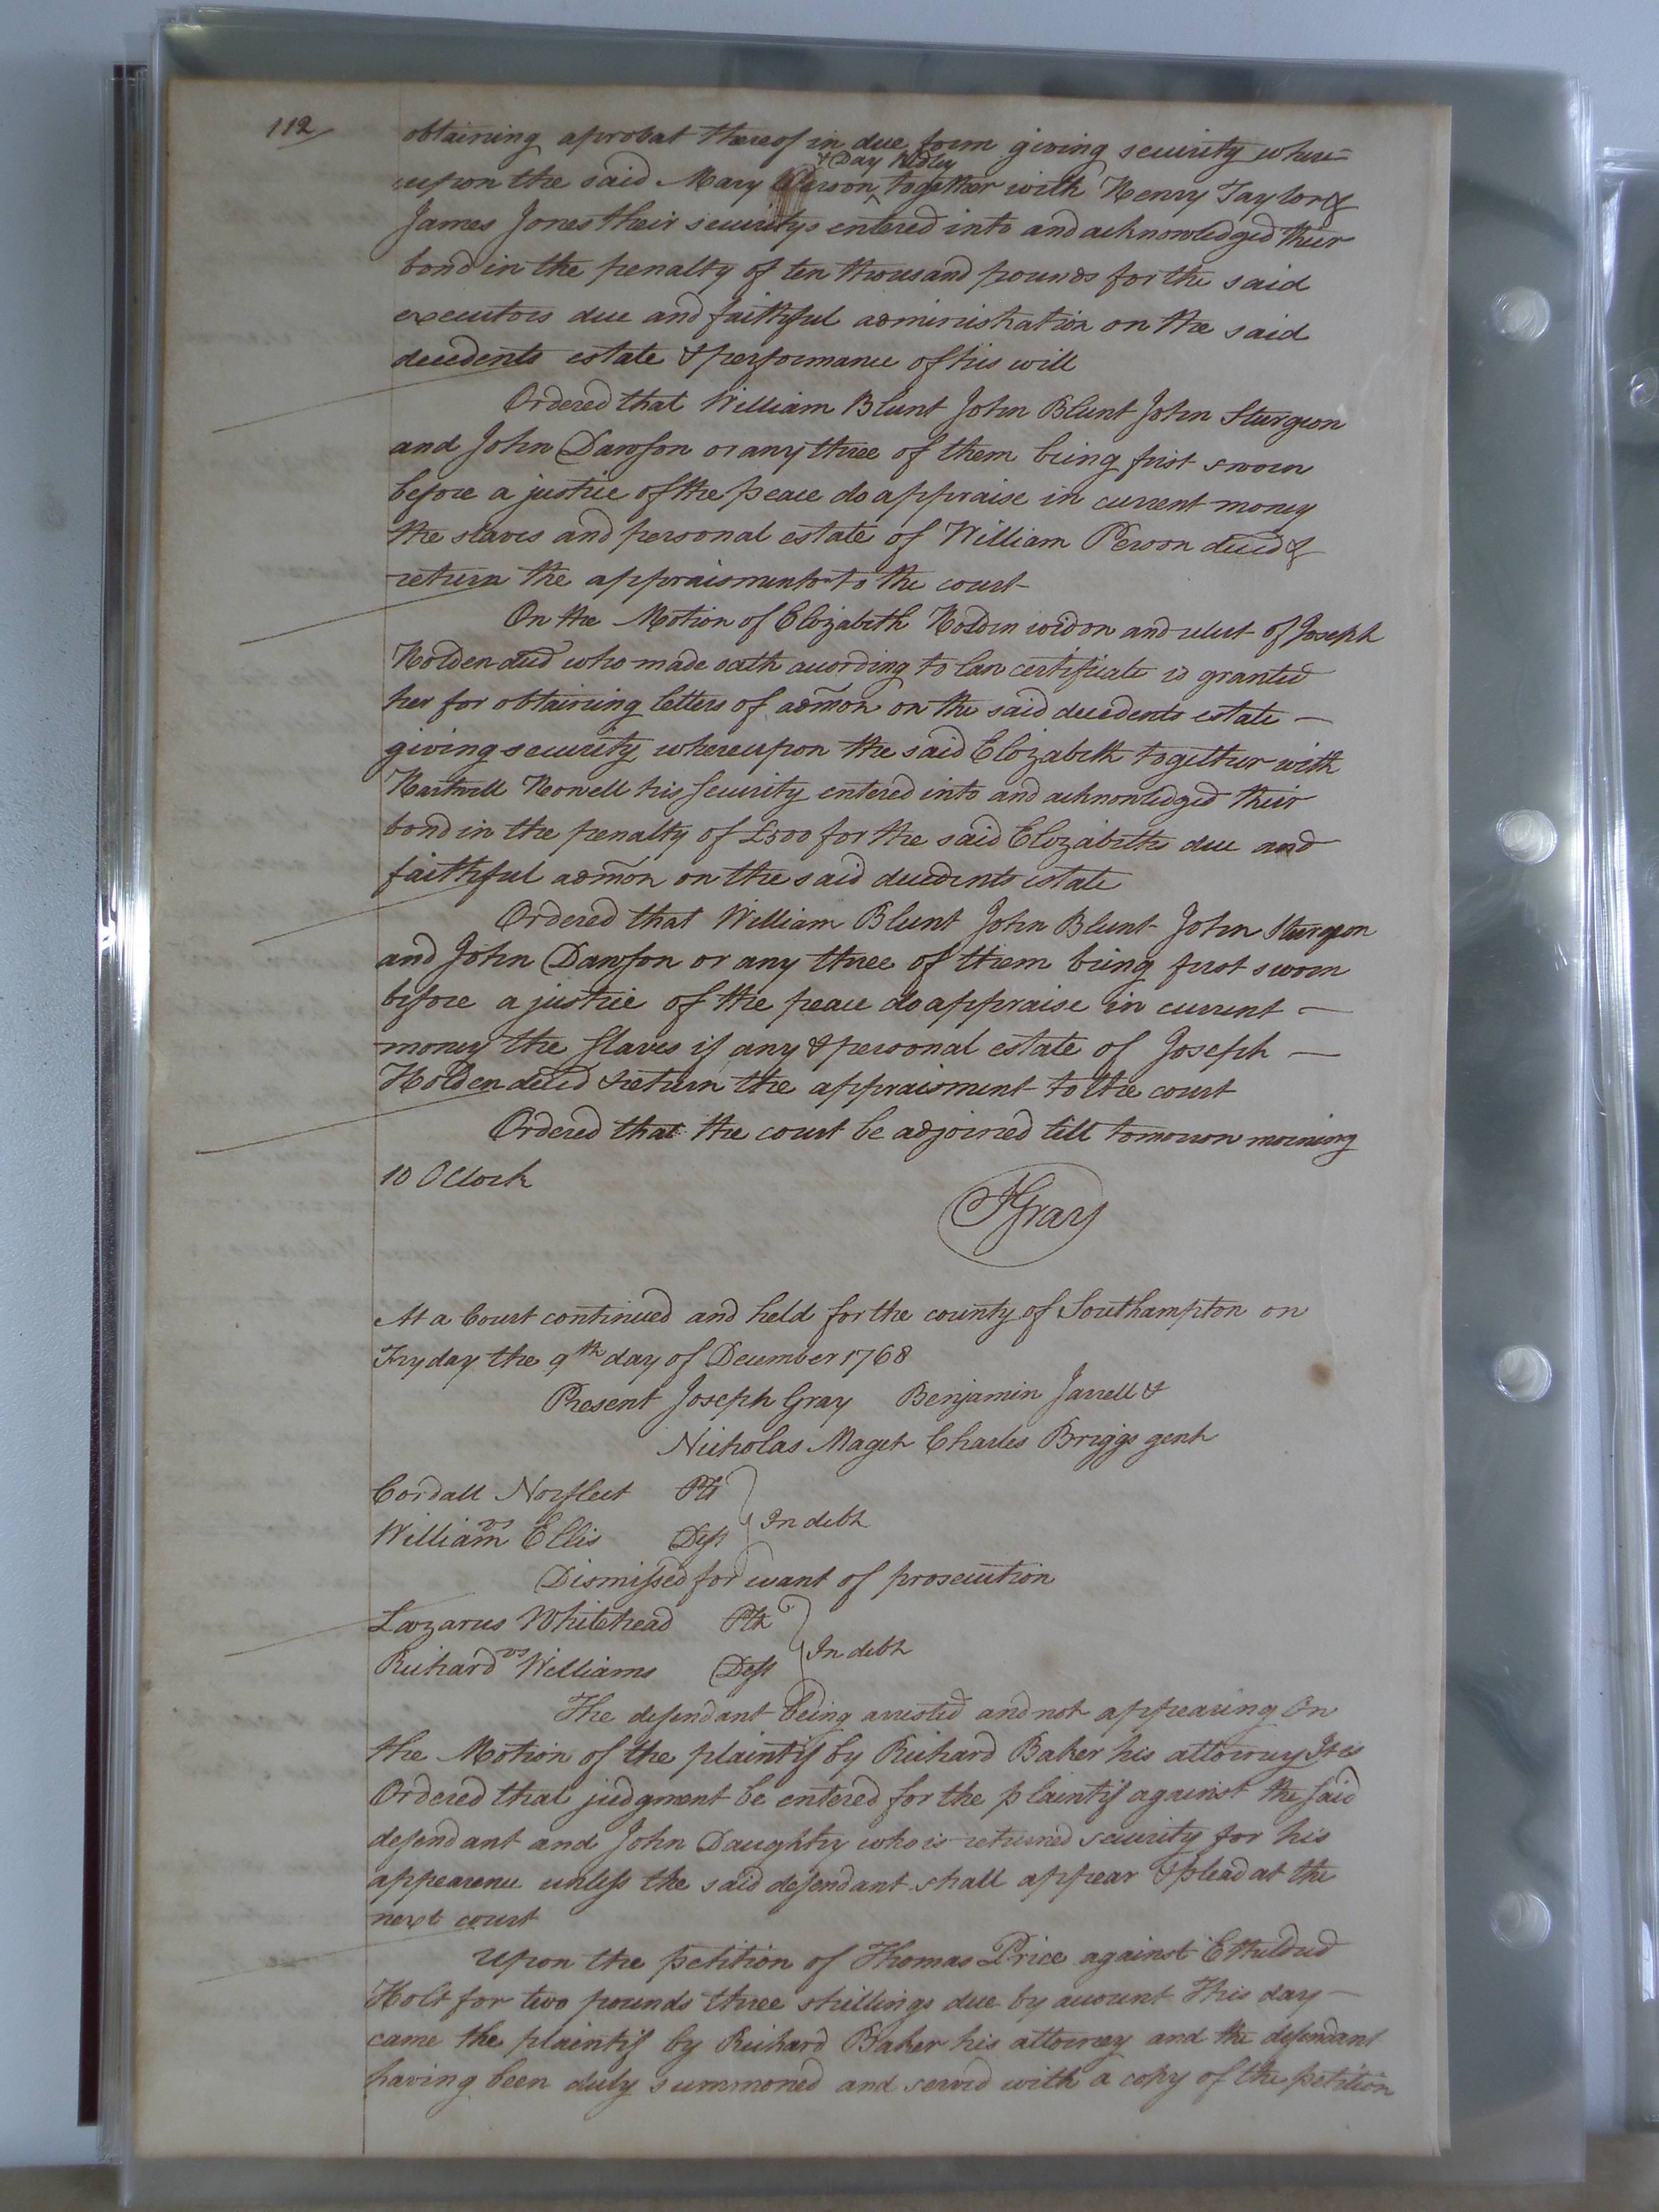 112
obtaining a probat thereof in due form giving security where=
& Day Ridley
upon the said Mary Person ^ together with Henry Taylor &
James Jones their securitys entered into and acknowledged their
bond in the penalty of ten thousand pounds for the said
executors due and faithful administration on the said
decedents estate & performance of his will
Ordered that William Blunt John Blunt John Sturgeon
and John Dawson or any three of them being first sworn
before a justice of the peace do appraise in current money
the slaves and personal estate of William Person decd &
return the appraisments to the court
On the Motion of Elizabeth Holden widow and relict of Joseph
Holden decd who made oath according to law certificate is granted
her for obtaining letters of admon on the said decedents estate —
giving security whereupon the said Elizabeth together with
Hartwell Howell his security entered into and acknowledged their
bond in the penalty of £500 for the said Elizabeths due and
faithful admon on the said decedents estate
Ordered that William Blunt John Blunt John Sturgeon
and John Dawson or any three of them being first sworn
before a justice of the peace do appraise in current —
money the slaves if any & personal estate of Joseph —
Holden decd & return the appraisment to the court
Ordered that the court be adjoined till tomorrow morning
10 OClock
JGray
At a Court continued and held for the county of Southampton on
Fryday the 9th day of December 1768
Present Joseph Gray Benjamin Jarrell &
Nicholas Maget Charles Briggs gent
Cordall Norfleet Plt
vs
In debt
William Ellis Deft
Dismissed for want of prosecution
Lazarus Whitehead Plt
vs
In debt
Richard Williams Deft
The defendant being arrested and not appearing On
the Motion of the plaintif by Richard Baker his attorney It is
Ordered that judgment be entered for the plaintif against the said
defendant and John Daughtry who is returned security for his
appearence unless the said defendant shall appear & plead at the
next court
Upon the petition of Thomas Price against Etheldred
Holt for two pounds three shillings due by account This day —
came the plaintif by Richard Baker his attorney and the defendant
having been duly summoned and served with a copy of the petition